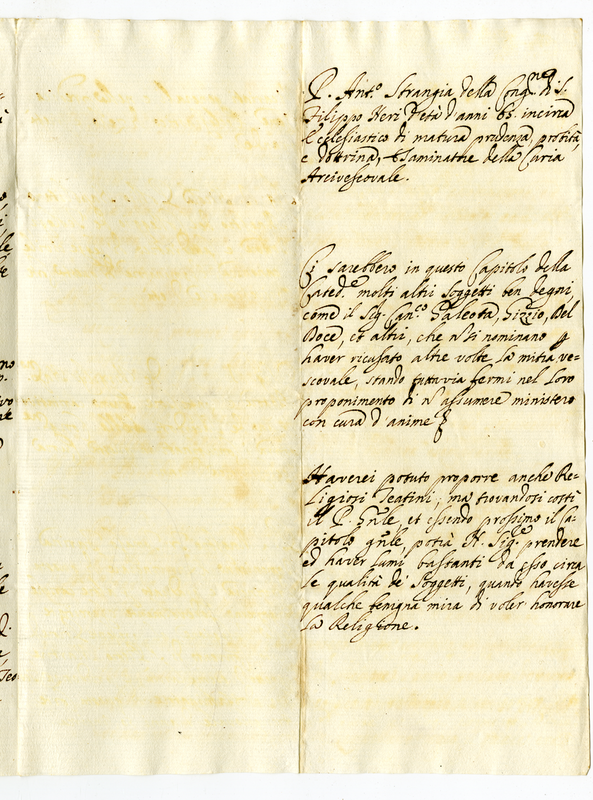 P. Ant.o Strangia della Cong.ne di S.
Filippo Neri d'età d'anni 63. incirca
Ecclesiastico di matura prudenza, probità,
e dottrina, Esaminatre della Curia
Arcivescovale.
Ci sarebbero in questo Capitolo della
Cated.e molti altri Soggetti ben degni,
come il Sig. Can.co Galeota, Gizzio, Del
Doce, et altri, che nō si nominano p
haver ricusato altre volte la mitra ve-
scovale, stando tuttavia fermi nel loro
proponimento di nō assumere ministero
con cura d'anime
Haverei potuto proporre anche Re-
ligiosi Teatini; ma trovandosi costì
il P. Gnle, et essendo prossimo il Ca-
pitolo gnle, potrà N. Sig.re prendere
ed haver lumi bastanti da esso circa
le qualità de' Soggetti, quando havesse
qualche benigna mira di voler honorare
la Religione.
no
vo
le
Teo